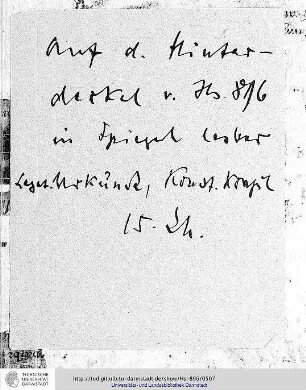 Auf d. Hinter-
deckel v. Hs. 896
in Spiegel lesbar
Urkunde, Konst. Konzil
15. Jh.
TECHNISCHE
UNIVERSITÄT
DARMSTADT
http://tudigit.ulb.tu-darmstadt.de/show/Hs-896/0507
Universitäts- und Landesbibliothek Darmstadt